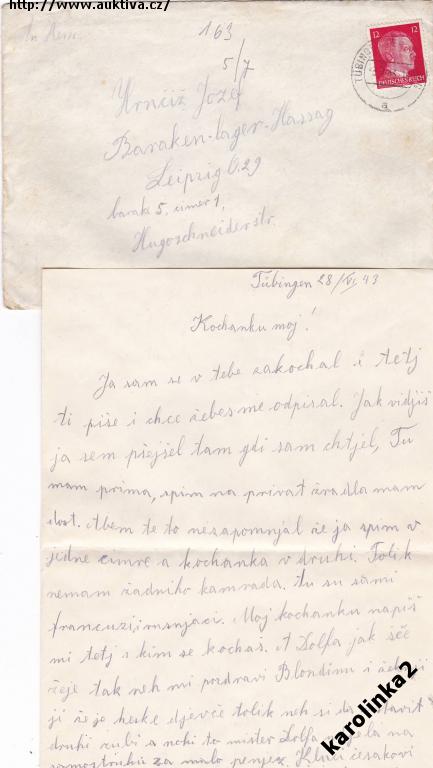 http://www.auktiva.cz/
163
5/7
12 12
DEUTSCHES REICH
TÜBING
a
Hrnčiž Jozef
Baraken-lager-Hassag
Leipzig O.29
barak 5, cimer 1,
Hugoschneiderstr.
Tübingen 28/VI 43
Kochanku moj!
Ja sam se v tebe zakochal i tetj
ti piše i chce žebes mě odpisal. Jak vidjiš
ja sem přejšel tam gdi sam chtjel, Tu
mam prima, spim na privat žradla mam
dost. Abem te to nezapomnjal že ja spim v
jedne cimre a kochanka v druhi. Tolik
nemam žadniho kamrada. tu su sami
francuzi, Moj kochanku napiš
mi tetj s kim se kochas. A Dolfa jak šče
žeje tak neh mi pozdravi Blondinu i
ji že je heske djevče tolik neh si da
druhi zubi a nohi to mister Dolfa na
za malo penjez.
karolinka2